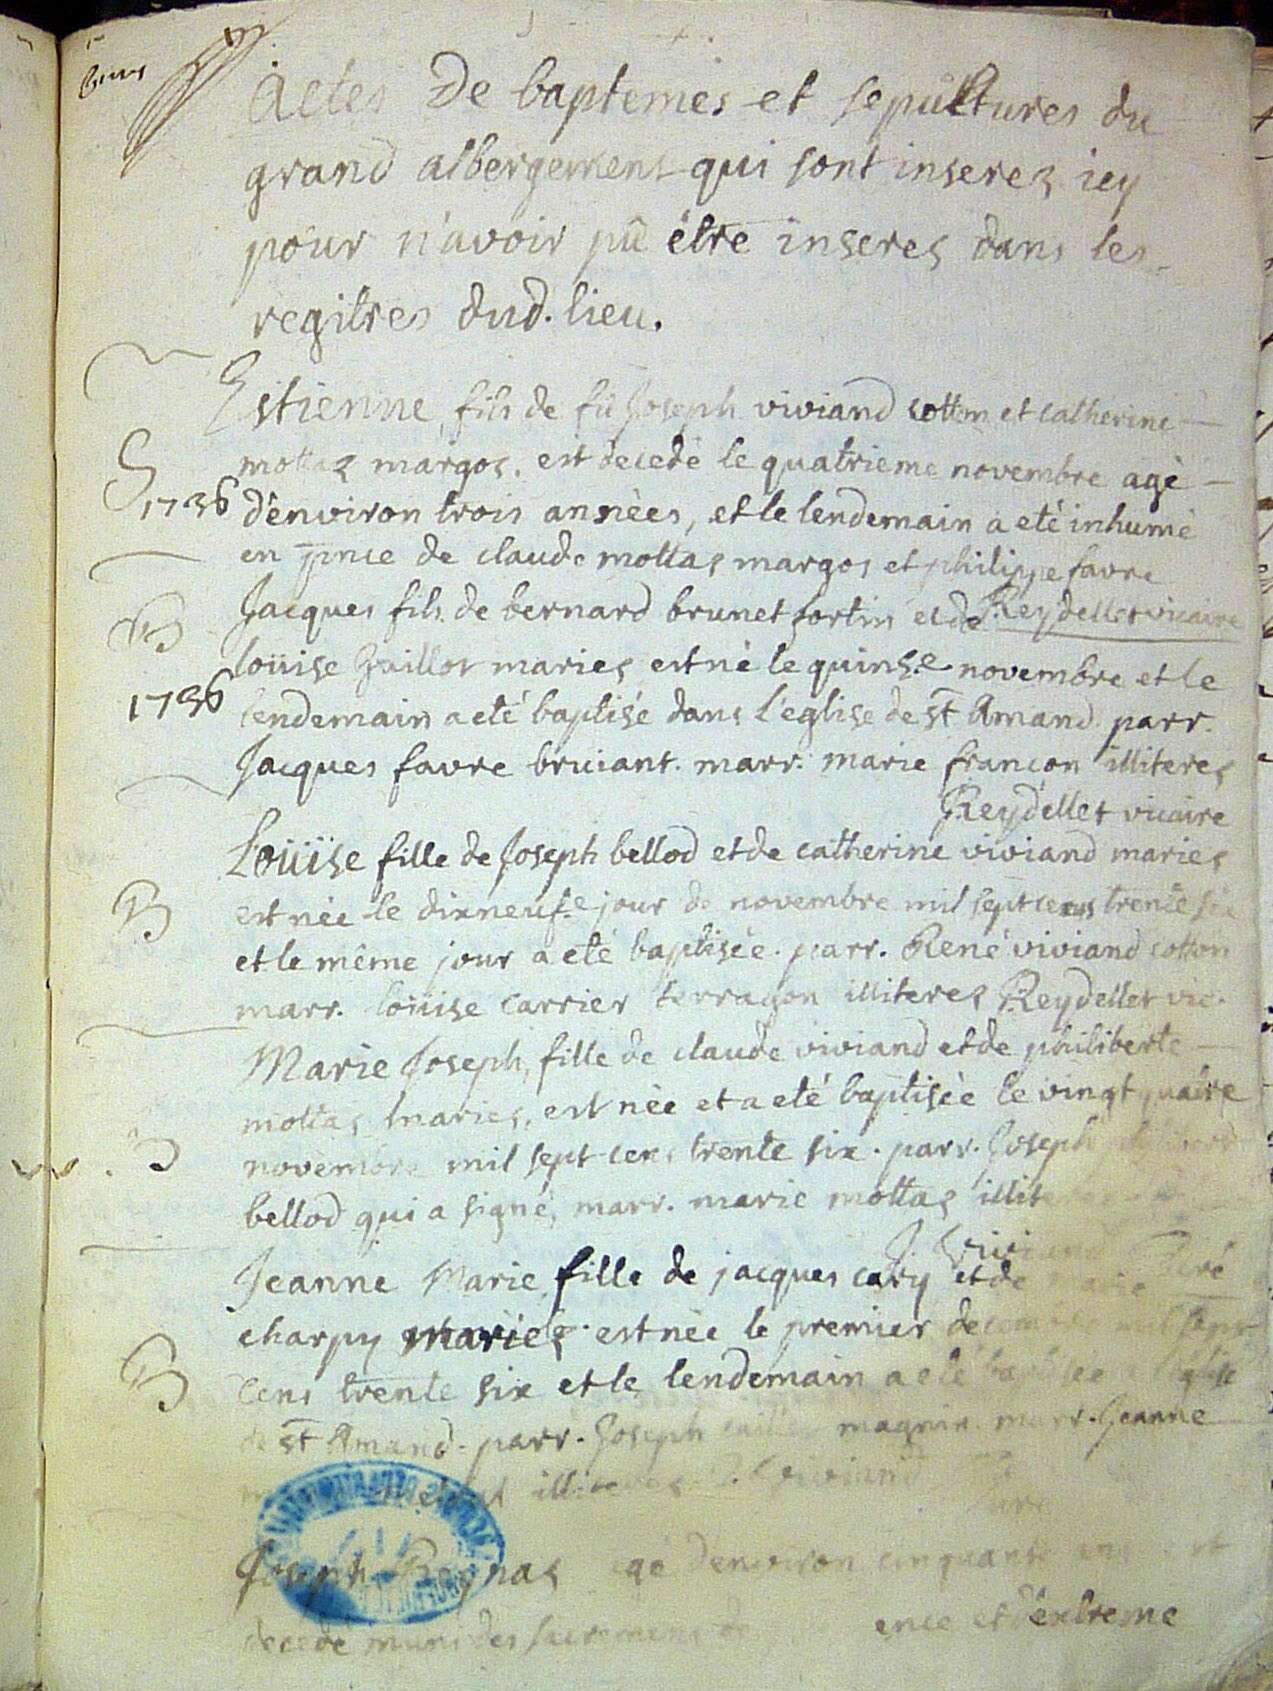 Actes De baptemes et sepultures du
grand albergement qui sont inserez icy
pour n'avoir pû étre inseres dans les
regitres dud. lieu.
Estienne, fils de fû Joseph viviand cotton et catherine
mottas margos, est decedé le quatrieme novembre agé
1736 d'environ trois annèes, et le lendemain a eté inhumé
en pnce de claude mottas margos et philippe favre
Reydellet vicaire
B Jacques fils de bernard brunet fortin et de
loüise Jaillot mariés est né le quinze novembre et le
1736 lendemain a eté baptisé dans l'eglise de st Amand parr.
Jacques favre bruiant. marr. marie francon illiteres
Reydellet vicaire
Loüise fille de Joseph bellod et de catherine viviand mariés
B est née le dixneufe jour de novembre mil sept cens trente six
et le même jour a eté baptisée. parr. René viviand cotton
marr. loüise carrier terragon illiteres Reydellet vic.
Marie Joseph, fille de claude viviand et de philiberte
mottas mariés, est née et a eté baptisèe le vingt quatre
B novembre mil sept cens trente six. parr. Joseph
bellod qui a signé, marr. marie mottas
Jeanne Marie fille de jacques cary et de
charpy mariés est nèe le premier decembre mil sept
B cens trente six et le lendemain a eté
de st Amand. parr. Joseph magnin marr. Jeanne
illiteres viviand
Joseph agé d'environ cinquante
decedé muni des sacremens de ence et d'extreme